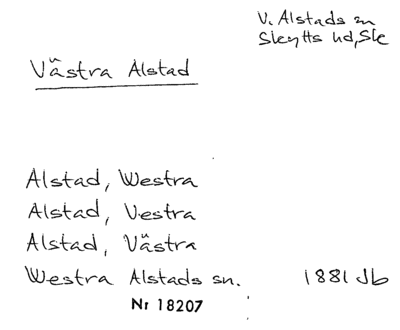 V. Alstads sn
Skytts hd, Ske
Västra Alstad
Alstad, Westra
Alstad, Vestra
Alstad, Västra
Westra Alstads sn. 1881 Jb
Nr 18207